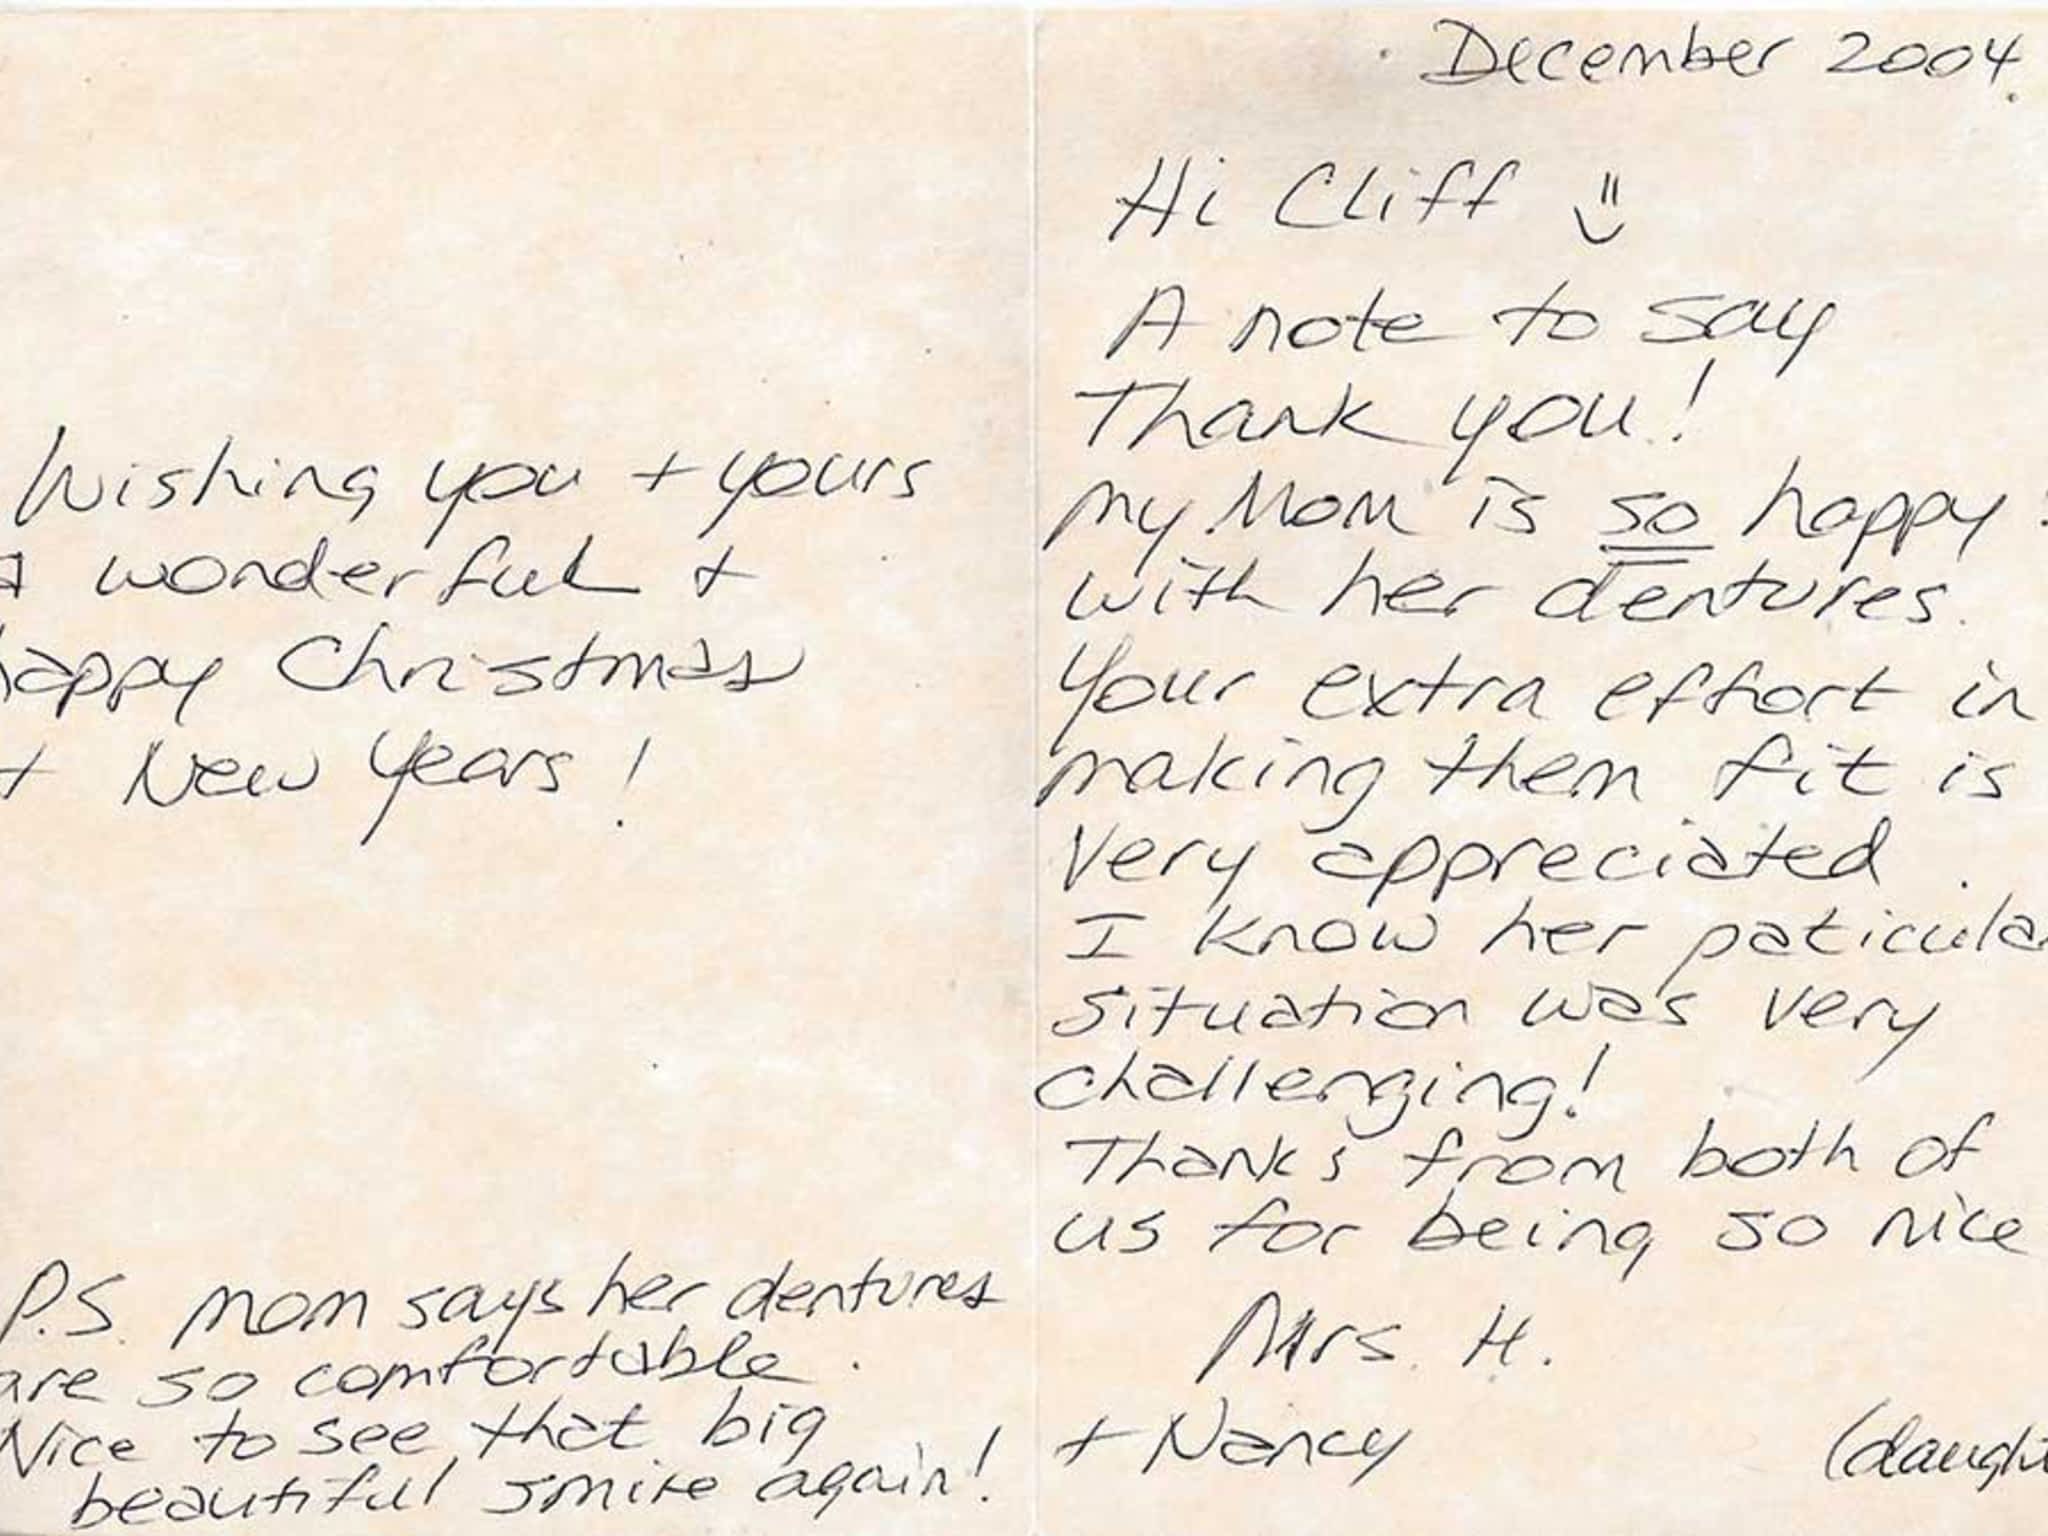 Wishing you + yours
a wonderful +
happy Christmas
+ New Years!
P.S. Mom says her dentures
are so comfortable.
Nice to see that big
beautiful smile again!
December 2004.
Hi Cliff
A note to say
Thank you!
My Mom is so happy
with her dentures.
Your extra effort in
making them fit is
very appreciated.
I know her paticular
situation was very
challenging!
Thanks from both of
us for being so nice
Mrs. H.
+ Nancy (daught